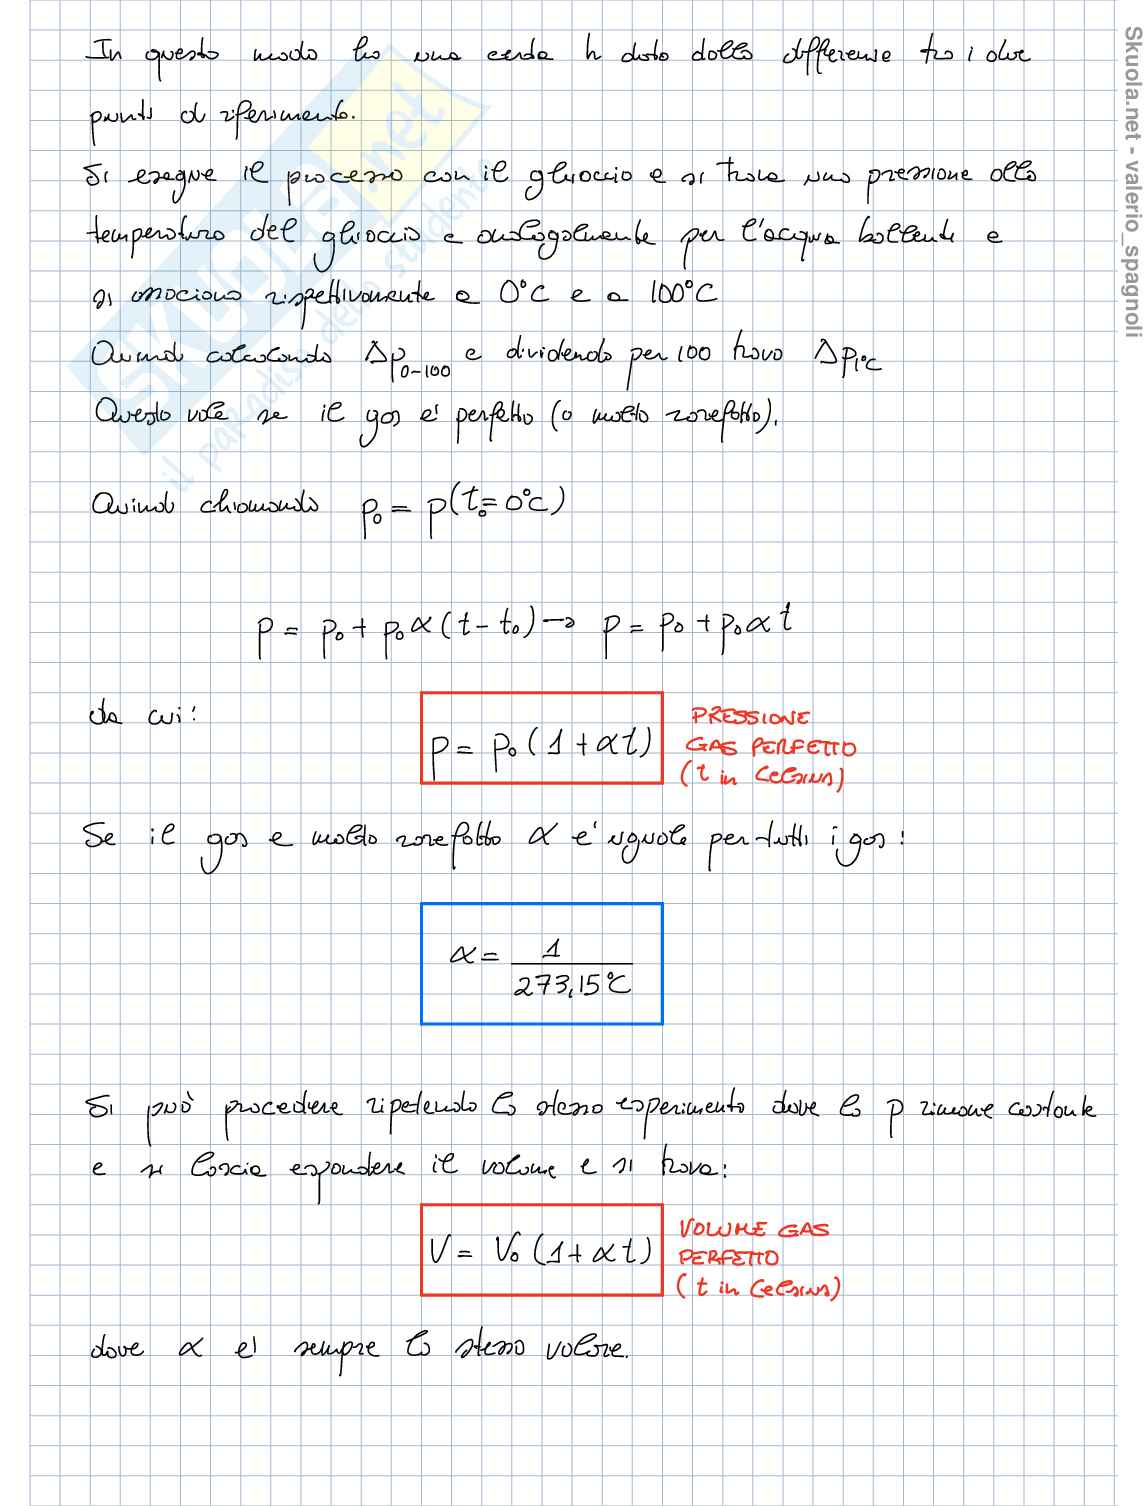 In questo modo ho una certa h data dalla differenza tra i due
punti di riferimento.
Si esegue il processo con il ghiaccio e si trova una pressione alla
temperatura del ghiaccio e analogamente per l'acqua bollente e
si associano rispettivamente a 0°C e a 100°C
Quindi calcolando Δp₀₋₁₀₀ e dividendo per 100 trovo Δp₁°C
Questo vale se il gas e' perfetto (o molto rarefatto).
Quindi chiamando p₀ = p(t₀=0°C)
p = p₀ + p₀α(t-t₀) → p = p₀ + p₀αt
da cui:
p = p₀(1+αt)
PRESSIONE
GAS PERFETTO
(t in Celsius)
Se il gas e molto rarefatto α e' uguale per tutti i gas:
α = 1/273,15°C
Si può procedere ripetendo lo stesso esperimento dove la p rimane costante
e si lascia espandere il volume e si trova:
V = V₀(1+αt)
VOLUME GAS
PERFETTO
(t in Celsius)
dove α e' sempre lo stesso valore.
Skuola.net - valerio_spagnoli
SKUOLA.net
il paradiso dello studente